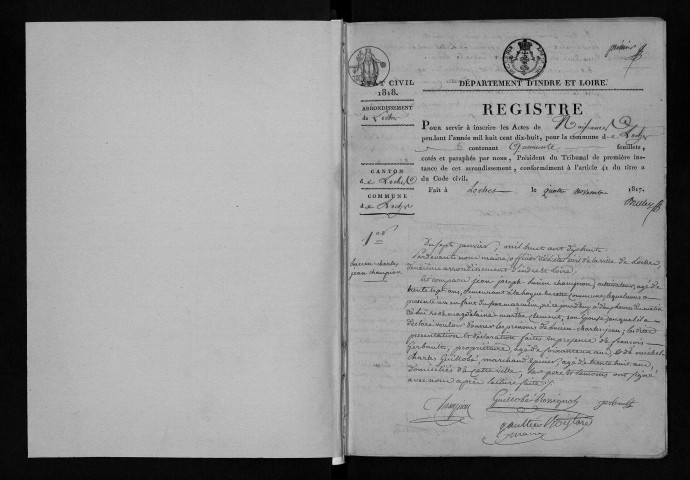 ETAT CIVIL
1818.
ARRONDISSEMENT
de Loches
CANTON
de Loches
COMMUNE
de Loches
premier
DÉPARTEMENT D'INDRE ET LOIRE.
REGISTRE
POUR servir à inscrire les Actes de Naissances
pendant l'année mil huit cent dix-huit, pour la commune de Loches
contenant Quarante feuillets,
cotés et paraphés par nous, Président du Tribunal de première ins-
tance de cet arrondissement, conformément à l'article 41 du titre 2
du Code civil.
Fait à Loches le quatre novembre 1817.
lucien-charles
jean champion
Du sept janvier, mil huit cent dix huit
Pardevant nous maire, officier de l'état civil de la ville de Loches,
arrondissement d'indre et Loire
Est comparu jean joseph lucien champion, cultivateur, agé de
trente sept ans, demeurant à cette commune, lequel nous a
présenté un enfant du sexe masculin, né ce jourd'hui à
de lui et de magdelaine marthe clement, son épouse, auquel il a
déclaré vouloir donner les prénoms de lucien charles jean; les dites
présentation et déclaration faites en présence de françois
Gerbault, propriétaire, agé de ans, et de michel
charles Guillobé, marchand épicier, agé de trente huit ans,
domiciliés de cette ville, les père et témoins ont signé
avec nous après lecture faite
Champion Guillobé Rossignol Gerbault
gaultier
maire